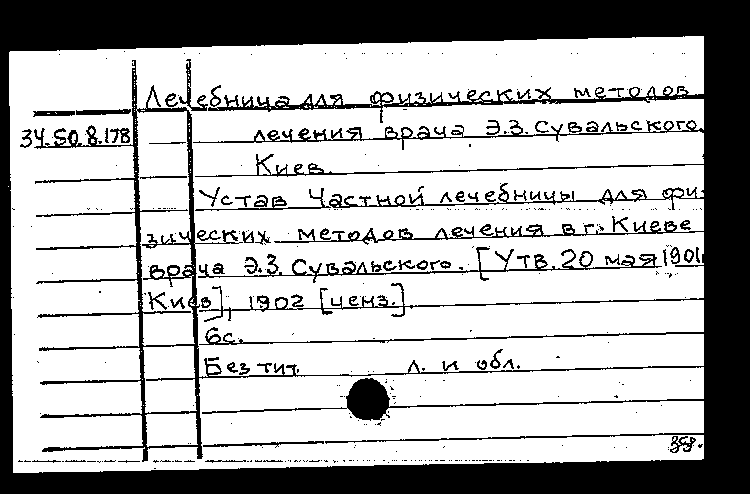 Лечебница для физических методов
34.50.8.178
лечения врача Э.З. Сувальского.
Киев.
Устав Частной лечебницы для фи-
зических методов лечения в г. Киеве
врача Э.З. Сувальского. [Утв. 20 мая 1901
Киев], 1902 [ценз.].
6с.
Без тит. л. и обл.